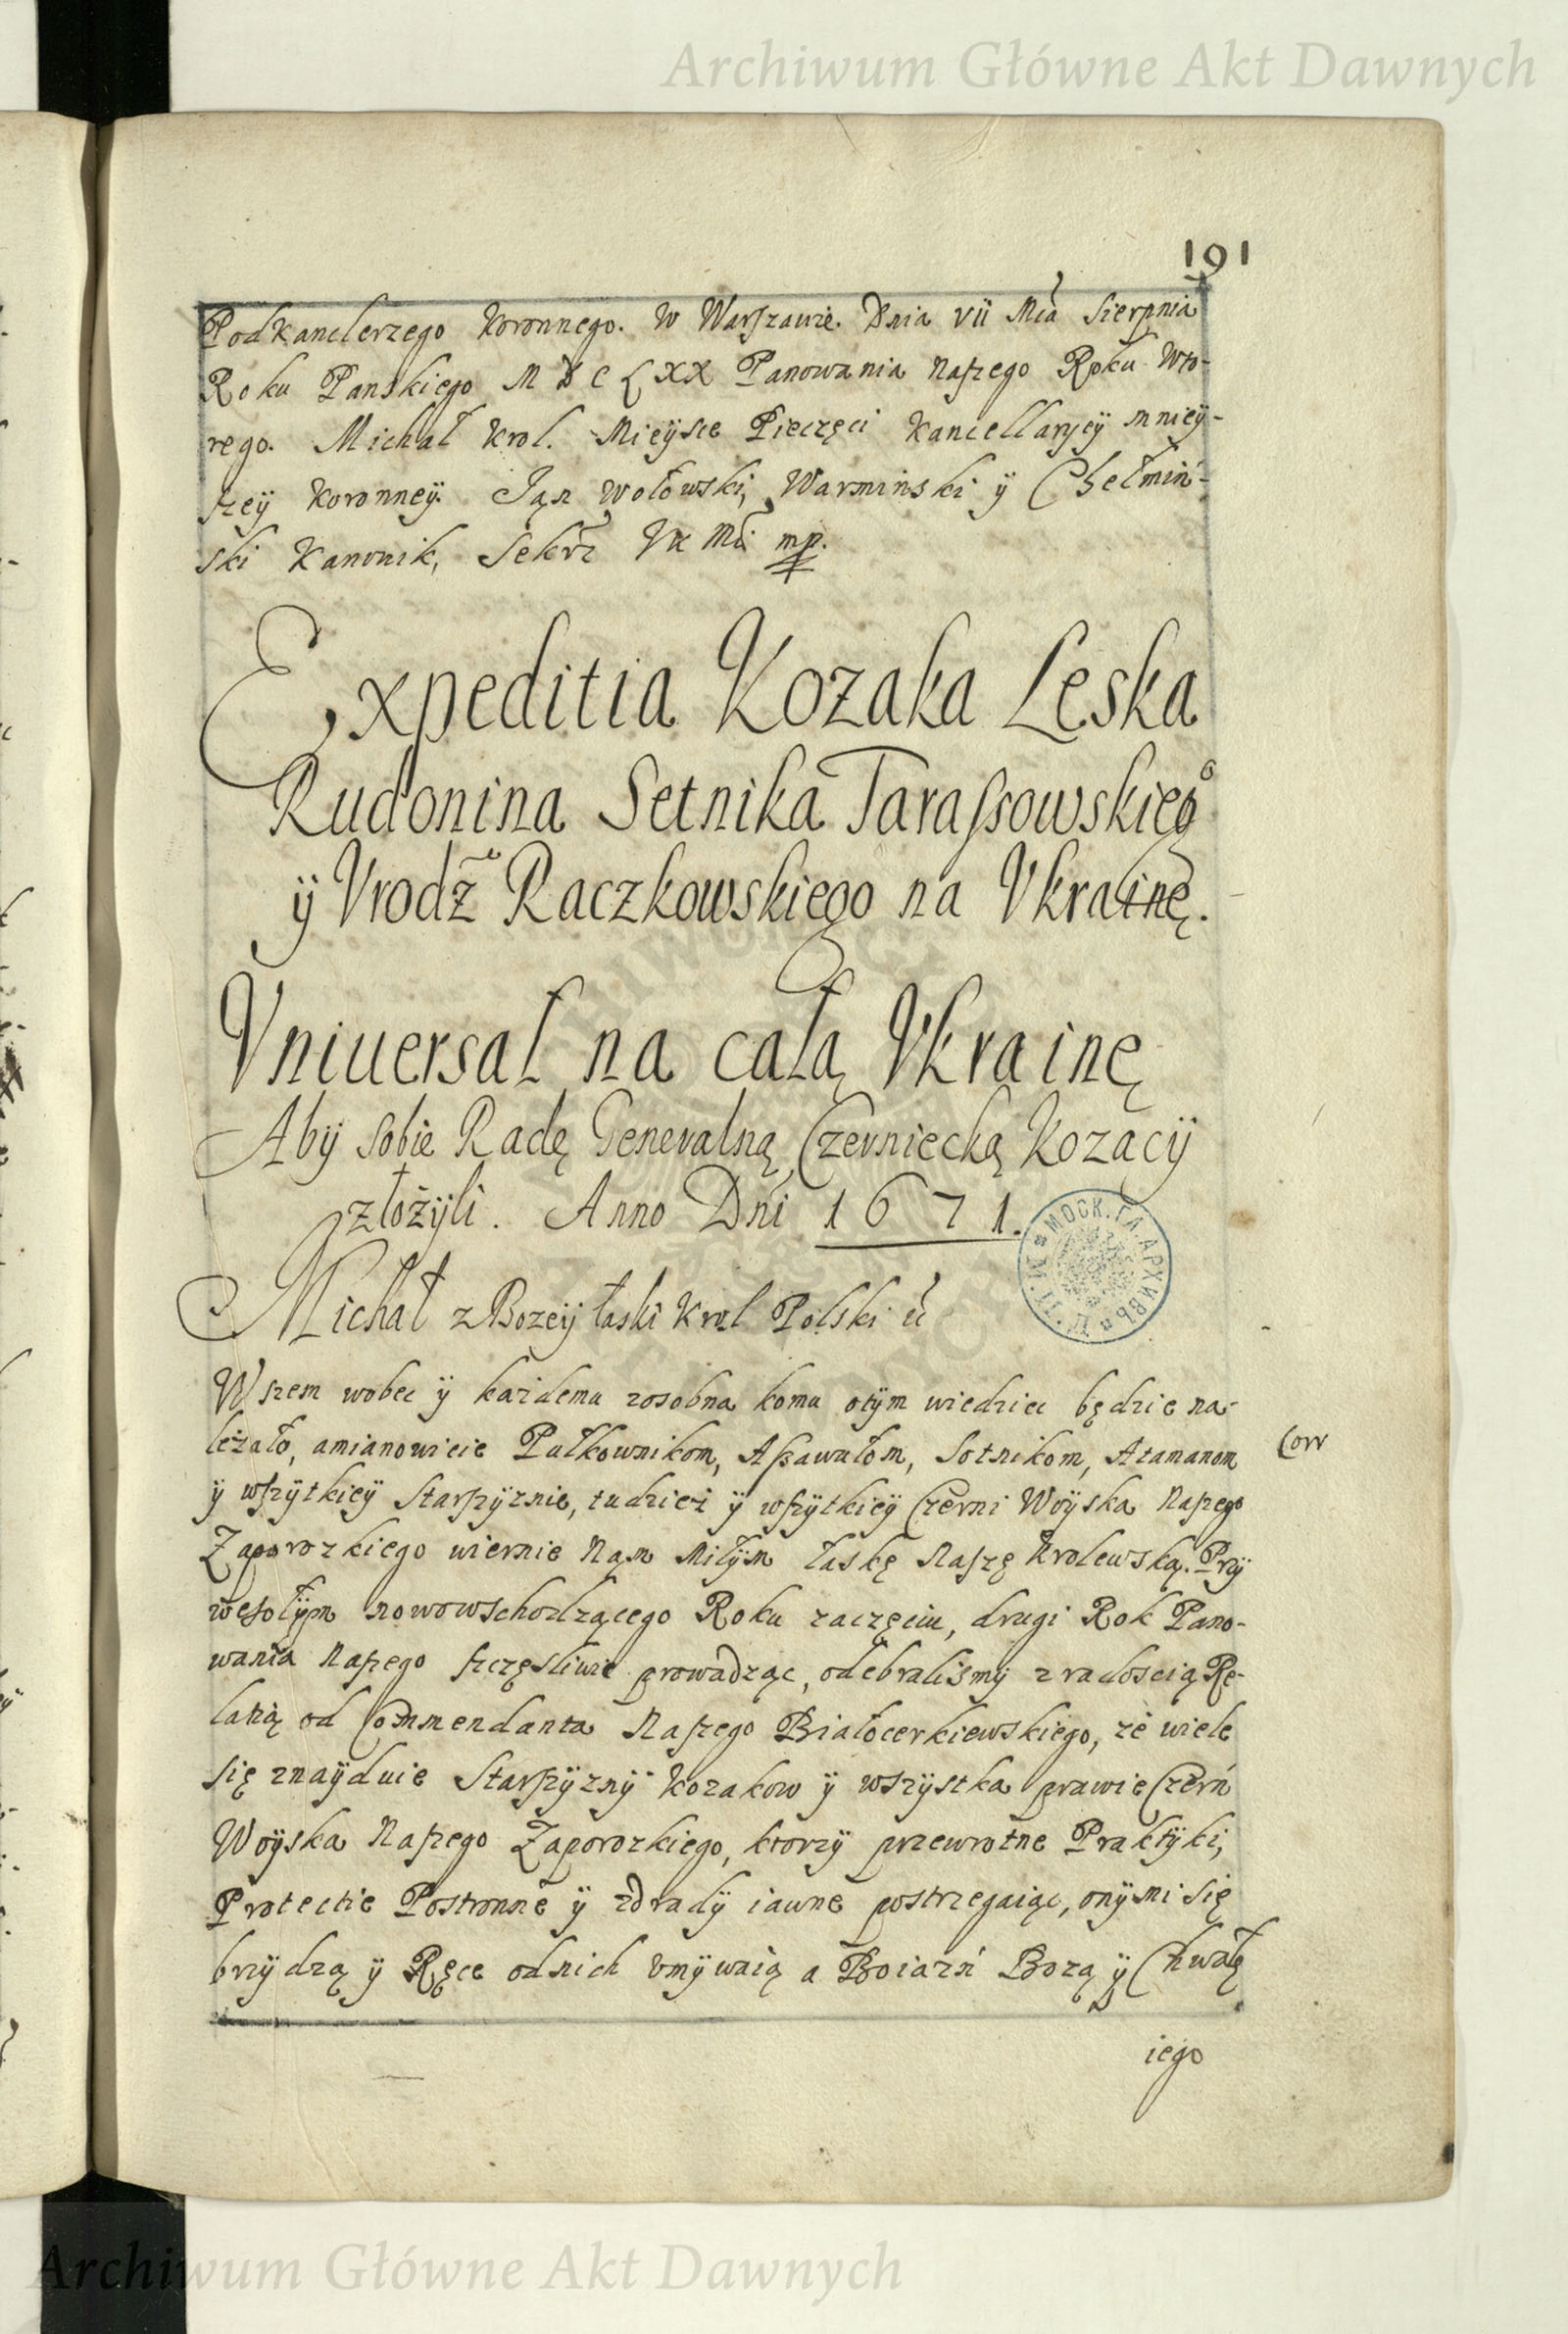 Archiwum Główne Akt Dawnych
191
Podkanclerzego Koronnego. W Warszawie. Dnia VII Mca Sierpnia
Roku Panskiego MDCLXX Panowania Naszego Roku Wto-
rego. Michał Krol. Mieysce Pieczęci Kancellaryey mniey-
szey Koronney. Jąn Wołowski, Warminski ÿ Chełmiń-
ski Kanonik, Sekrz JK Mci mp.
Expeditia Kozaka Leska
Rudonina Setnika Tarassowskiego
ÿ Vrodz Raczkowskiego na Vkrainę.
Vniuersał na całą Vkrainę
Abÿ sobie Radę Generalną Czerniecką Kozacÿ
złożÿli. Anno Dni 1671.
Michał z Bozeÿ łaski Krol Polski
Wszem wobec ÿ każdemu zosobna komu otÿm wiedziec będzie na-
leżało, amianowicie Pułkownikom, Assawułom, Sotnikom, Atamanom
Corr
ÿ wszÿtkieÿ Starszÿznie, tudzież ÿ wszÿtkieÿ Czerni Woÿska Naszego
Zaporozkiego wiernie Nąm Miłÿm łaskę Naszę Krolewską. Przÿ
wesołÿm nowowschodzącego Roku zaczęciu, drugi Rok Pano-
wania Naszego szczęsliwie prowadząc, odebralismÿ z radoscią Re-
latią od Commendanta Naszego Białocerkiewskiego, że wiele
się znaÿduie Starszÿznÿ Kozakow ÿ wszÿstka prawie Czerń
Woÿska Naszego Zaporozkiego, ktorzÿ przewrotne Praktÿki,
Protectie Postronne ÿ zdradÿ iawne postrzegaiąc, onÿmi się
brzÿdzą ÿ Ręce odnich vmÿwaią a Boiazń Bozą ÿ Chwałę
iego
МОСК. ГЛ. АРХИВЪ
Archiwum Główne Akt Dawnych